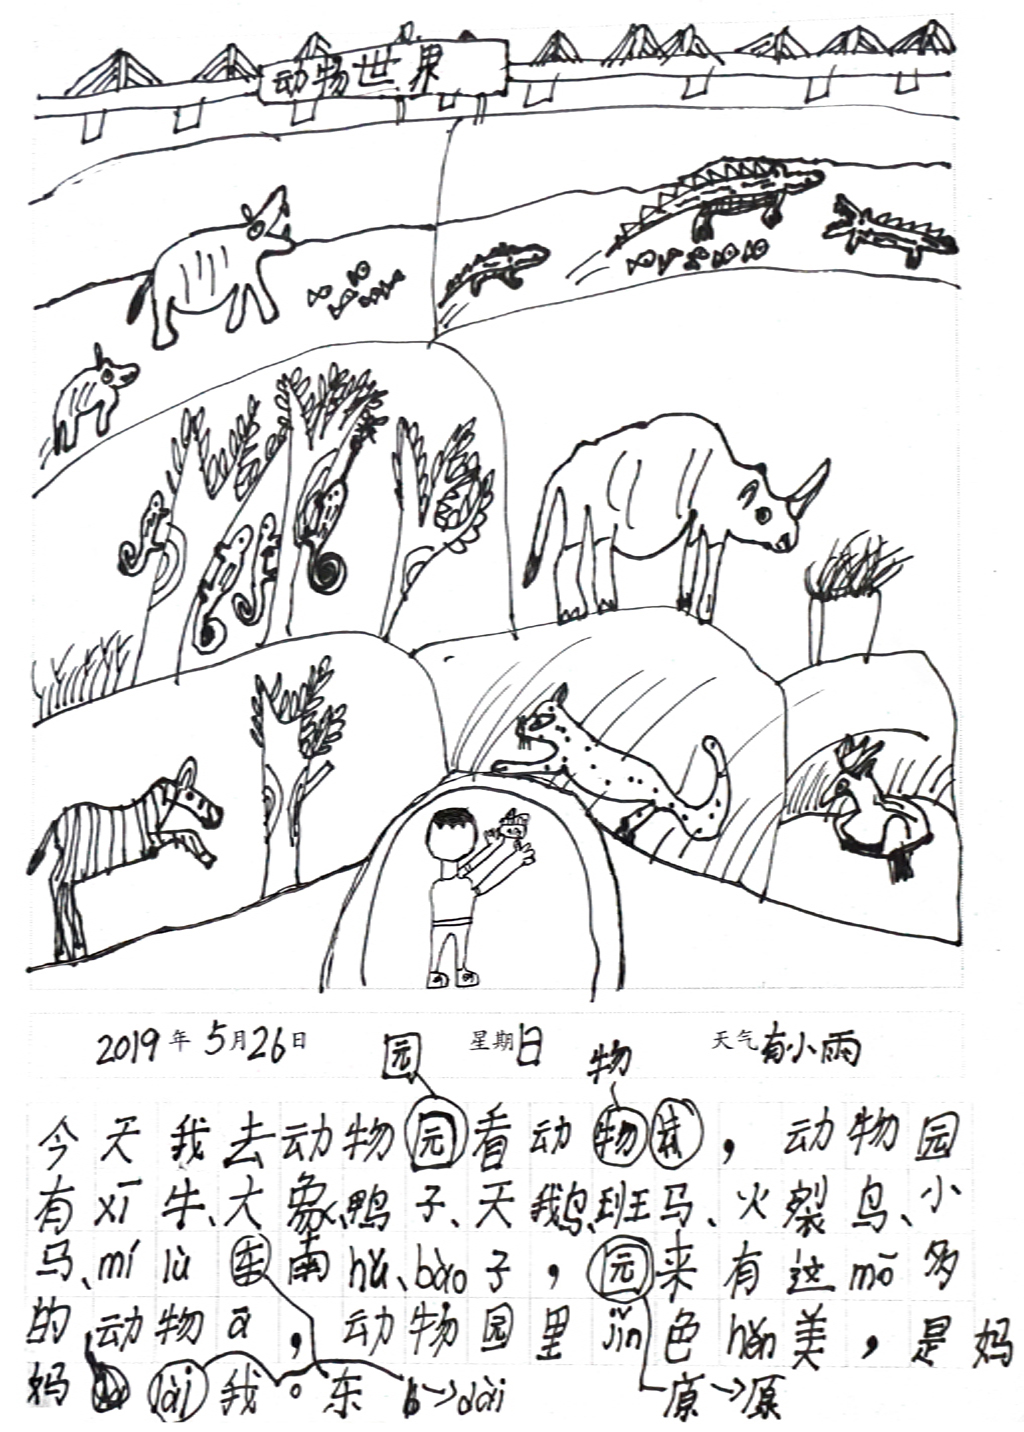 动物世界
2019年5月26日 星期日 天气有小雨
园 物
今天我去动物园看动物林，动物园
有xī牛、大象、鸭子、天鹅、班马、火裂鸟、小
马、mí lù东南hǔ、bào子，园来有这mō多
的动物ā，动物园里jǐn色hěn美，是妈
妈 dài我。东 b→dài 原→原